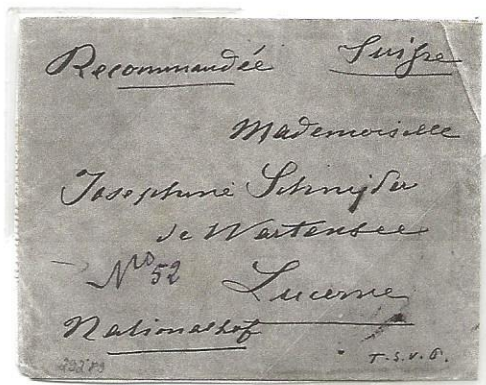 Recommandée Suisse
Mademoiselle
Josephine Schnijder
de Wartensee
No 52
Lucerne
Nationalhof
T.S.V.P.